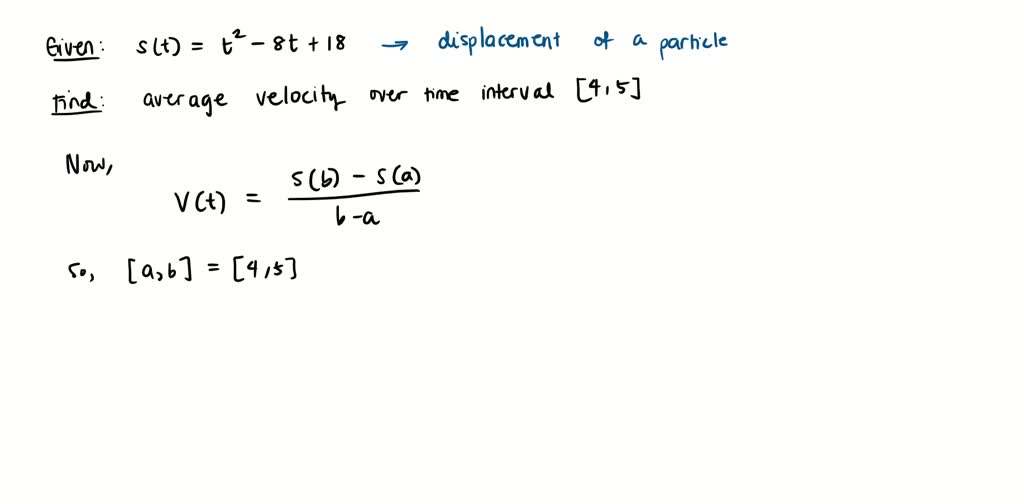 Given: s(t) = t² - 8t + 18 → displacement of a particle
Find: average velocity over time interval [4,5]
Now,
V(t) = \frac{s(b) - s(a)}{b-a}
so, [a,b] = [4,5]